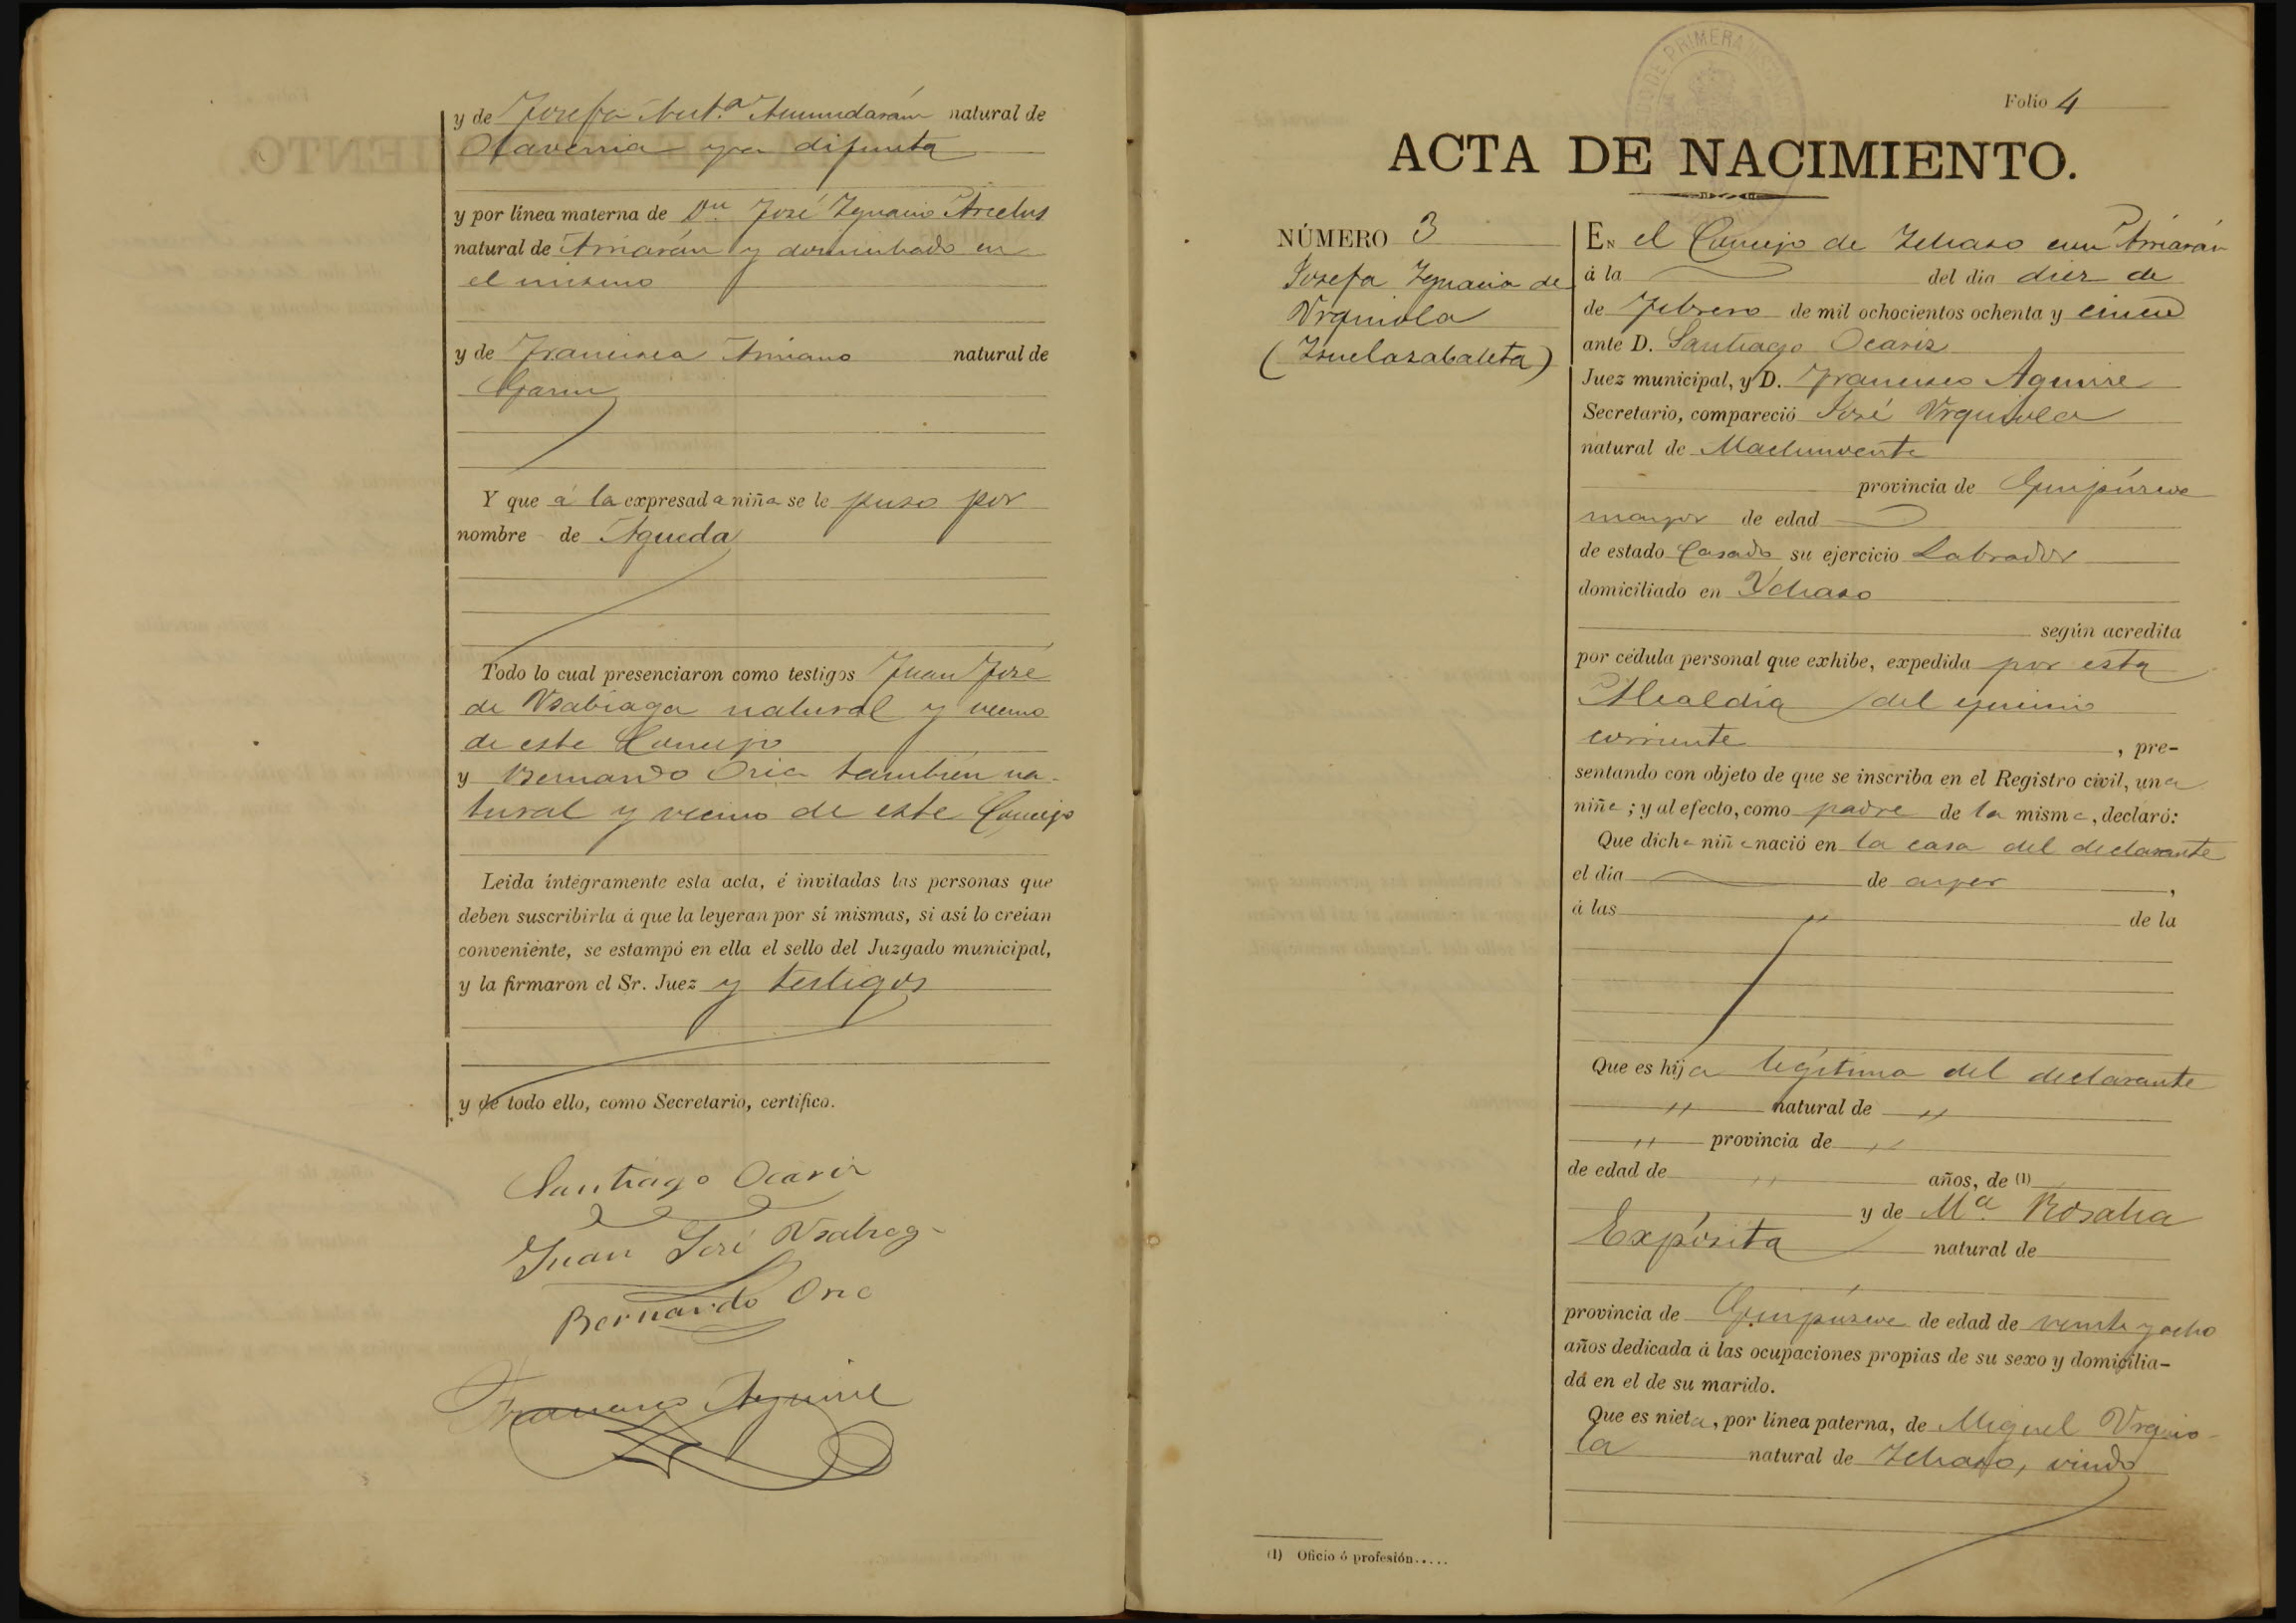 y de Josefa Ant.ª Amundarain natural de
Olaverria ya difunta
y por línea materna de Dn. José Ygnacio Arcelus
natural de Arriarán y domiciliado en
el mismo
y de Francisca natural de
Garin
Y que á la expresada niña se le puso por
nombre de Agueda
Todo lo cual presenciaron como testigos Juan José
de Usabiaga natural y vecino
de este Concejo
y Bernardo Oria también na-
tural y vecino de este Concejo
Leida íntegramente esta acta, é invitadas las personas que
deben suscribirla á que la leyeran por sí mismas, si así lo creían
conveniente, se estampó en ella el sello del Juzgado municipal,
y la firmaron el Sr. Juez y testigos
y de todo ello, como Secretario, certifico.
Santiago Ocariz
Juan José Usabiaga
Bernardo Oria
Francisco Aguirre
Folio 4
ACTA DE NACIMIENTO.
NÚMERO 3
Josefa Ygnacia de
Urquiola
(
)
EN el Concejo de Ychaso con Arriarán
á la del dia diez de
de Febrero de mil ochocientos ochenta y cinco
ante D. Santiago Ocariz
Juez municipal, y D. Francisco Aguirre
Secretario, compareció José Urquiola
natural de Machinventa
provincia de Guipúzcoa
mayor de edad
de estado Casado su ejercicio Labrador
domiciliado en Ychaso
según acredita
por cédula personal que exhibe, expedida por esta
Alcaldía del
corriente, pre-
sentando con objeto de que se inscriba en el Registro civil, una
niña; y al efecto, como padre de la misma, declaró:
Que dicha niña nació en la casa del declarante
el dia de ayer,
á las " de la
Que es hija legítima del declarante
" natural de "
" provincia de "
de edad de " años, de (1)
y de Mª. Rosalia
Expósita natural de
provincia de Guipúzcoa de edad de veinte y ocho
años dedicada á las ocupaciones propias de su sexo y domicilia-
dá en el de su marido.
Que es nieta, por línea paterna, de Miguel Urquio-
la natural de Ychaso, viudo
(1) Oficio ó profesión.....